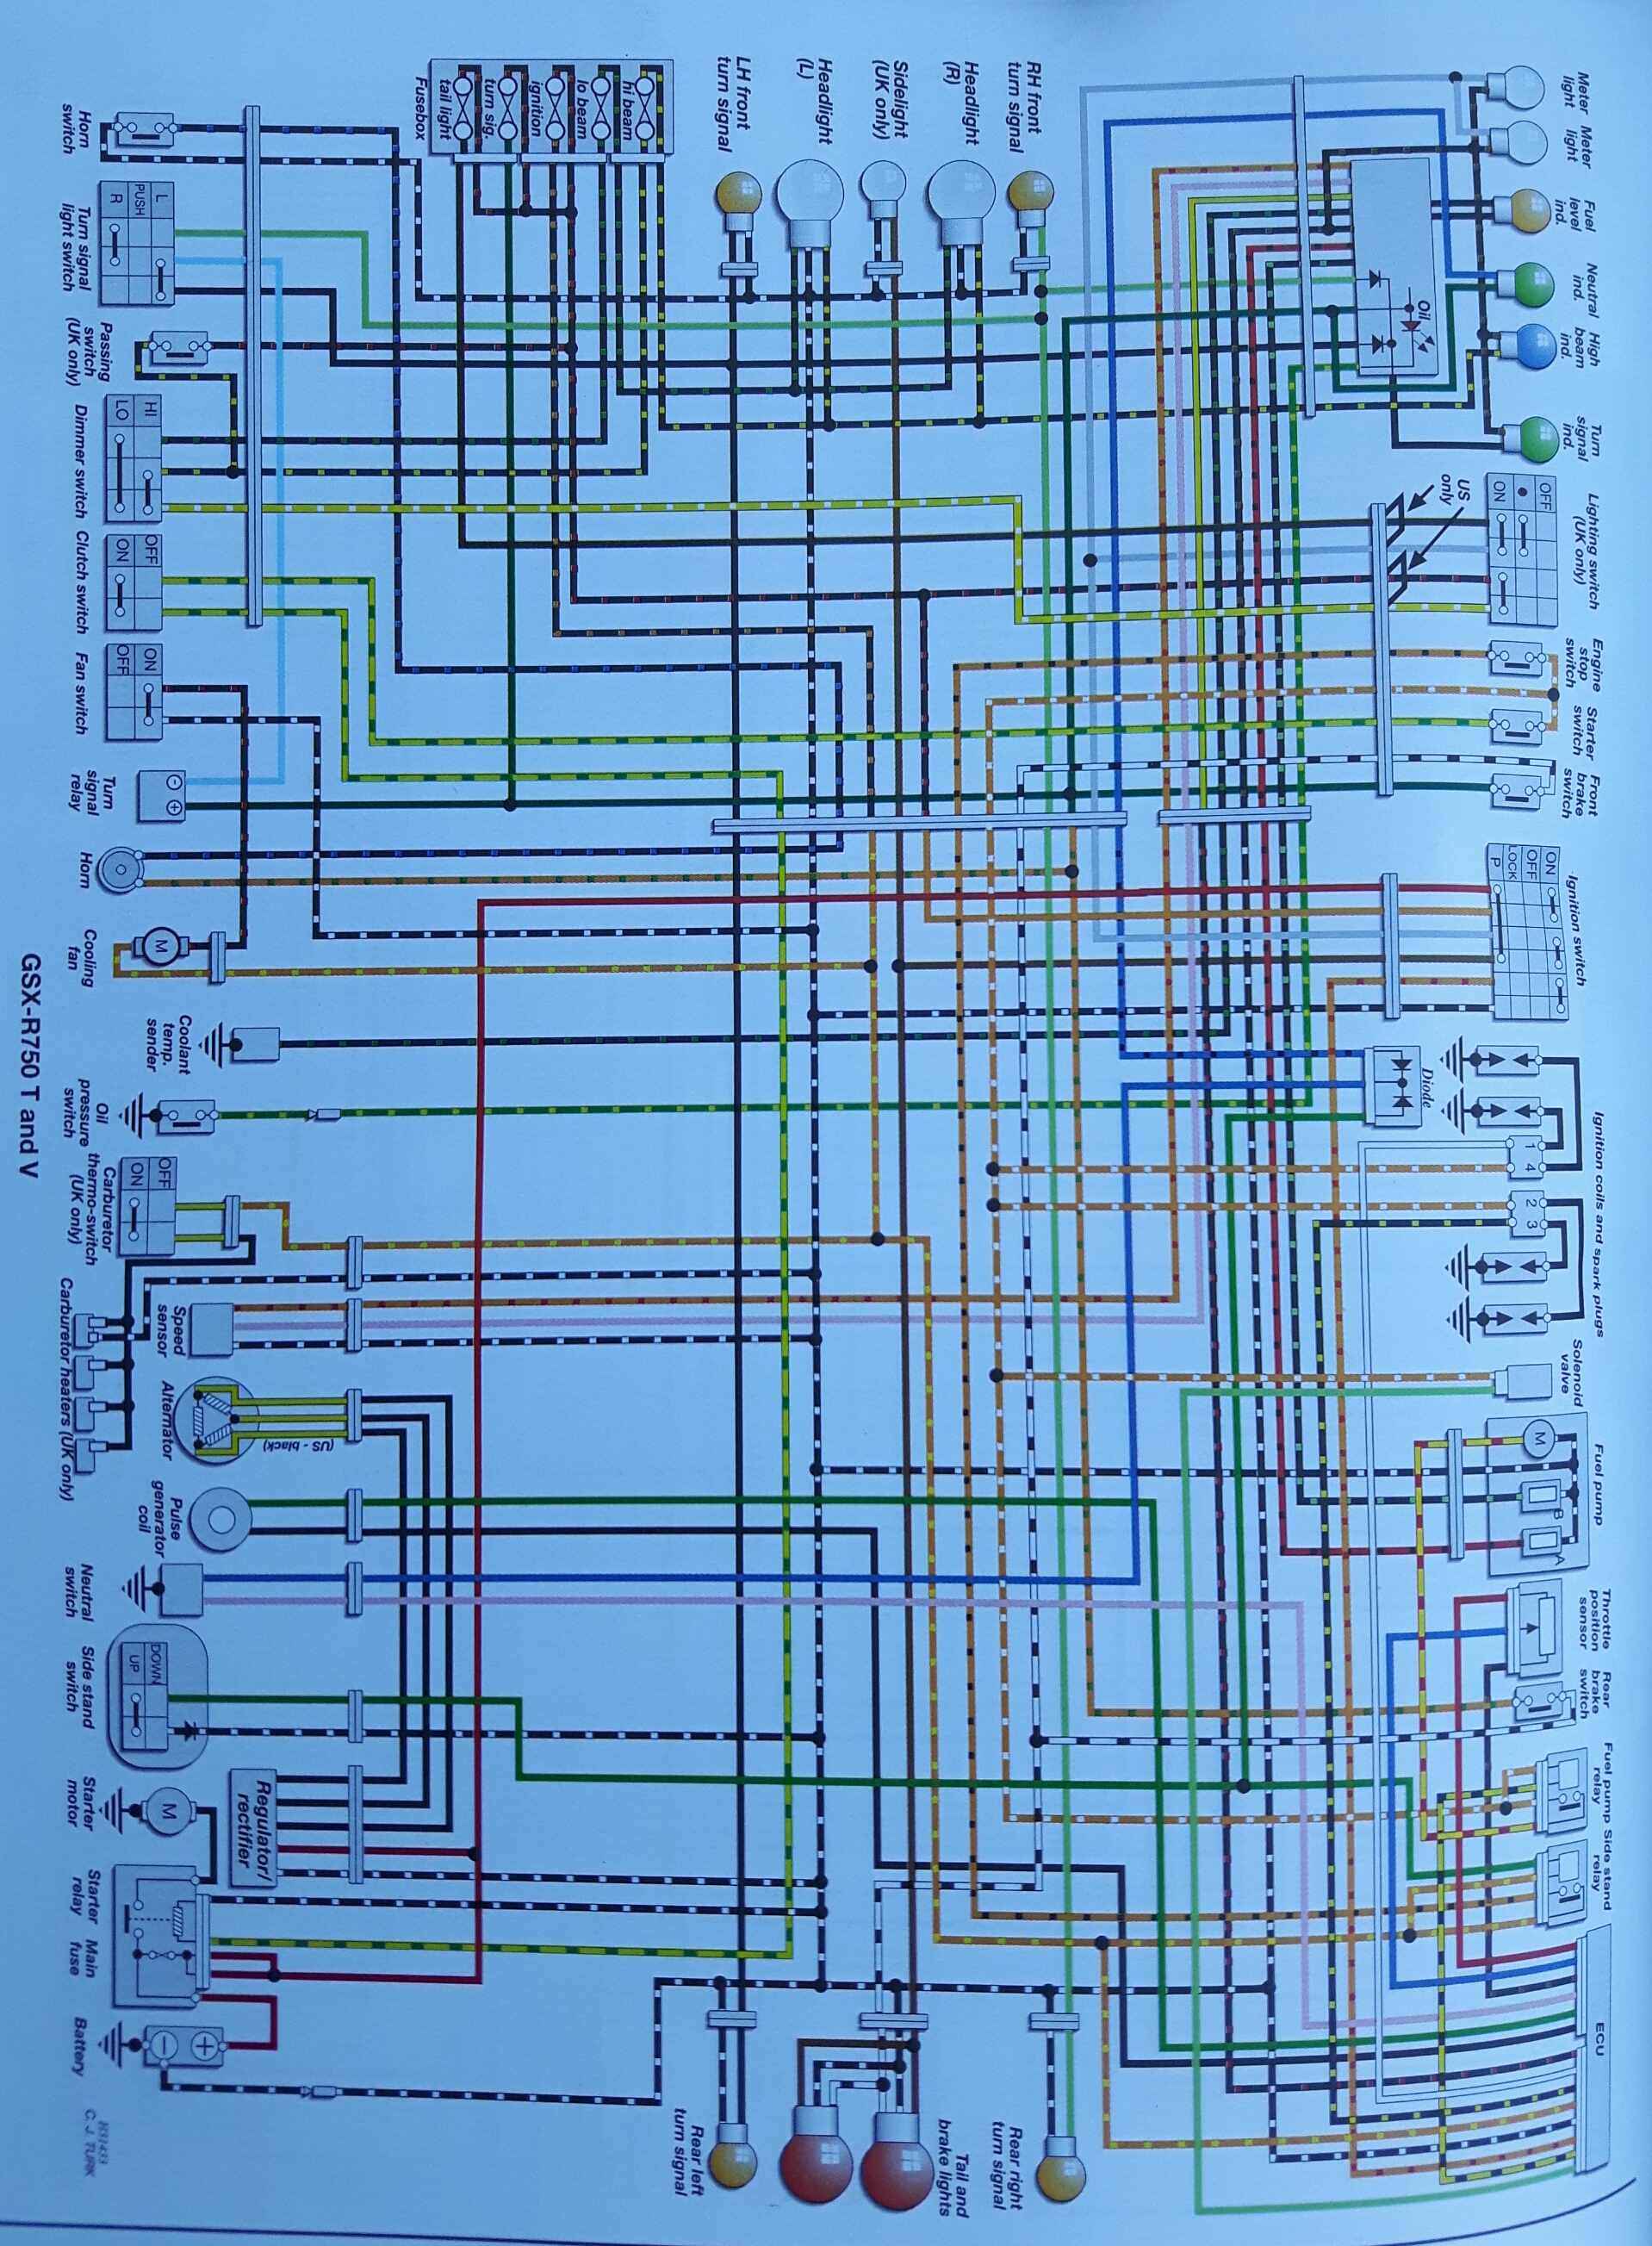 Meter
light
Meter
light
Fuel
level
ind.
Neutral
ind.
High
beam
ind.
Turn
signal
ind.
Lighting switch
(UK only)
Engine
stop
switch
Starter
switch
Front
brake
switch
Ignition switch
Ignition coils and spark plugs
Solenoid
valve
Fuel pump
Throttle
position
sensor
Rear
brake
switch
Fuel pump
relay
Side stand
relay
ECU
Oil
US
only
OFF
ON
ON
OFF
LOCK
P
Diode
1
4
2
3
M
B
A
RH front
turn signal
Headlight
(R)
Sidelight
(UK only)
Headlight
(L)
LH front
turn signal
hi beam
lo beam
ignition
turn sig.
tail light
Fusebox
Rear right
turn signal
Tail and
brake lights
Rear left
turn signal
L
PUSH
R
HI
LO
OFF
ON
ON
OFF
M
OFF
ON
(US - black)
DOWN
UP
M
Regulator/
rectifier
Horn
switch
Turn signal
light switch
Passing
switch
(UK only)
Dimmer switch
Clutch switch
Fan switch
Turn
signal
relay
Horn
Cooling
fan
Coolant
temp.
sender
Oil
pressure
switch
Carburetor
thermo-switch
(UK only)
Carburetor heaters (UK only)
Speed
sensor
Alternator
Pulse
generator
coil
Neutral
switch
Side stand
switch
Starter
motor
Starter
relay
Main
fuse
Battery
H31433
C. J. TURK
GSX-R750 T and V